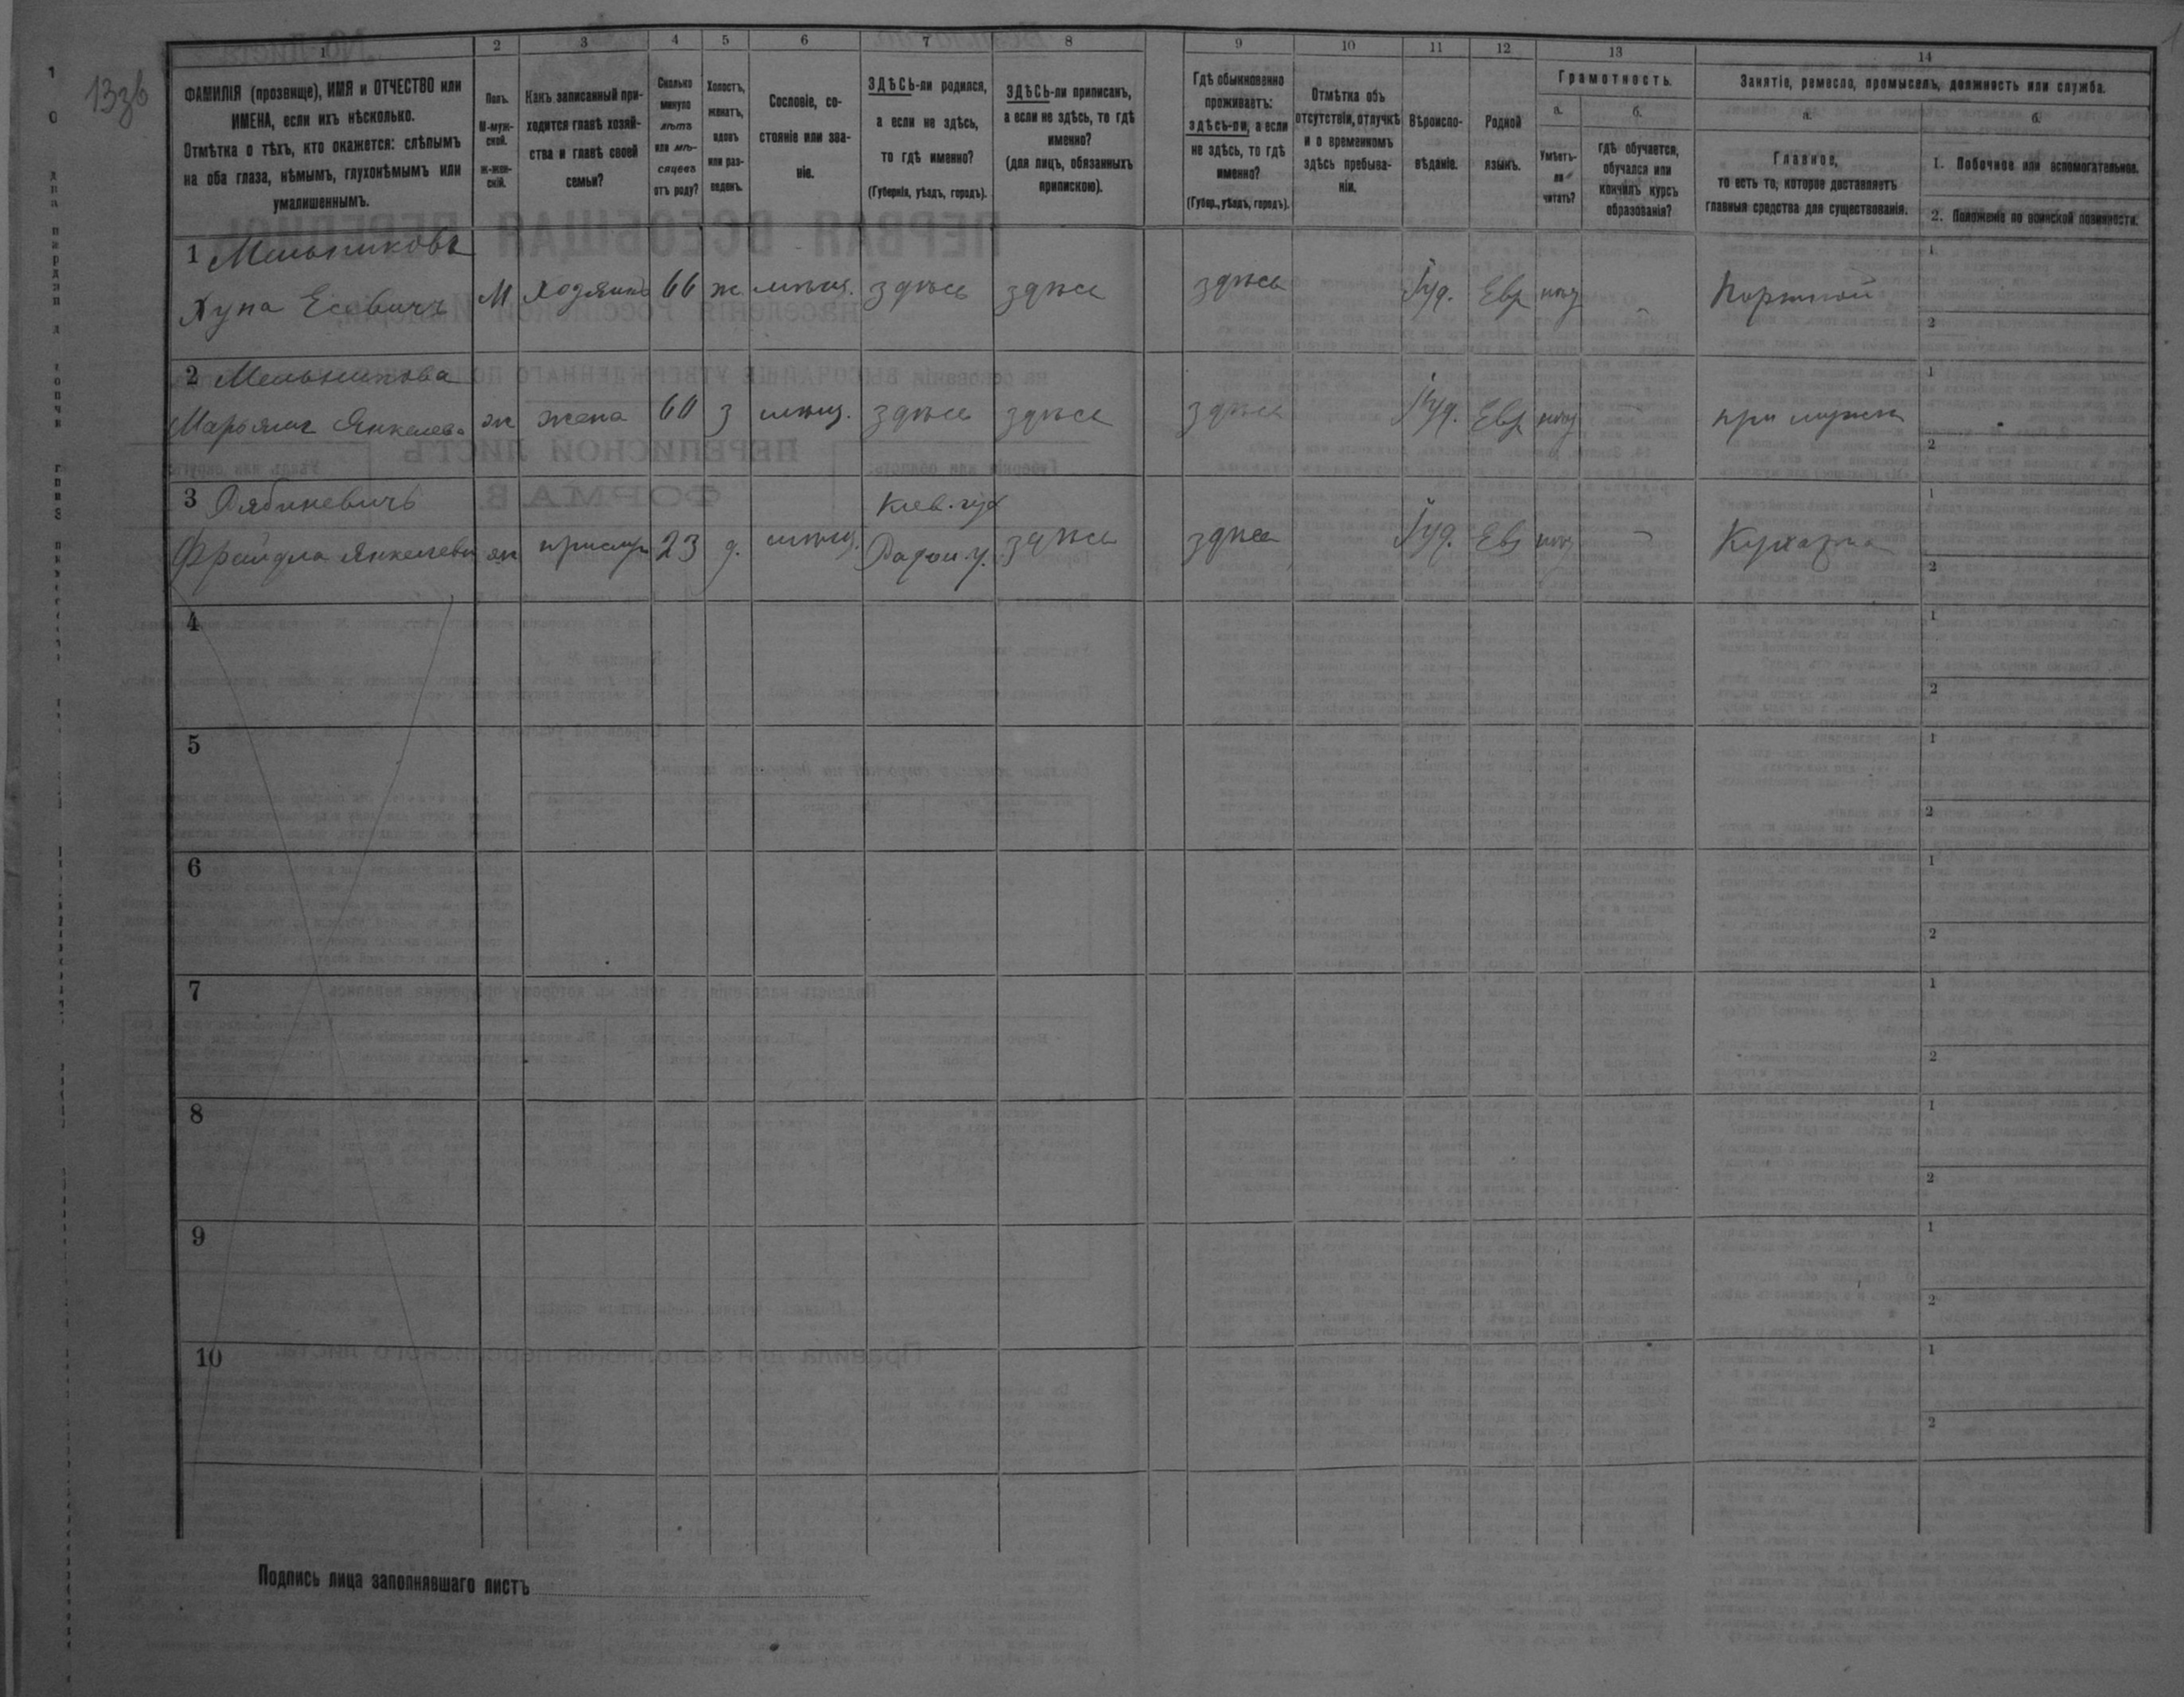 13зв
1 2 3 4 5 6 7 8 9 10 11 12 13 14
ФАМИЛІЯ (прозвище), ИМЯ и ОТЧЕСТВО или
ИМЕНА, если ихъ нѣсколько.
Отмѣтка о тѣхъ, кто окажется: слѣпымъ
на оба глаза, нѣмымъ, глухонѣмымъ или
умалишеннымъ.
Полъ.
М-муж-
ской.
ж-жен-
скій.
Какъ записанный при-
ходится главѣ хозяй-
ства и главѣ своей
семьи?
Сколько
минуло
лѣтъ
или мѣ-
сяцевъ
отъ роду?
Холостъ,
женатъ,
вдовъ
или раз-
веденъ.
Сословіе, со-
стояніе или зва-
ніе.
ЗДѢСЬ-ли родился,
а если не здѣсь,
то гдѣ именно?
(Губернія, уѣздъ, городъ).
ЗДѢСЬ-ли приписанъ,
а если не здѣсь, то гдѣ
именно?
(для лицъ, обязанныхъ
припискою).
Гдѣ обыкновенно
проживаетъ:
здѣсь-ли, а если
не здѣсь, то гдѣ
именно?
(Губер., уѣздъ, городъ).
Отмѣтка объ
отсутствіи, отлучкѣ
и о временномъ
здѣсь пребыва-
ніи.
Вѣроиспо-
вѣданіе.
Родной
языкъ.
Грамотность.
а.
Умѣетъ-
ли
читать?
б.
гдѣ обучается,
обучался или
кончилъ курсъ
образованія?
Занятіе, ремесло, промыселъ, должность или служба.
а.
Главное,
то есть то, которое доставляетъ
главныя средства для существованія.
б.
1. Побочное или вспомогательное.
2. Положеніе по воинской повинности.
1 Мельниковъ
Хупа Есевичъ М Хозяинъ 66 ж мѣщ. здѣсь здѣсь здѣсь Іуд. Евр Портной
1
2
2 Мельникова
Марьяся Янкелева ж жена 60 з мѣщ. здѣсь здѣсь здѣсь Іуд. Евр при мужѣ
1
2
3 Киев. губ
Фрейдла Янкелевна ж прислуг 23 д. мѣщ. Радом. у. здѣсь здѣсь Іуд. Евр Кухарка
1
2
4
1
2
5
1
2
6
1
2
7
1
2
8
1
2
9
1
2
10
1
2
Подпись лица заполнявшаго листъ